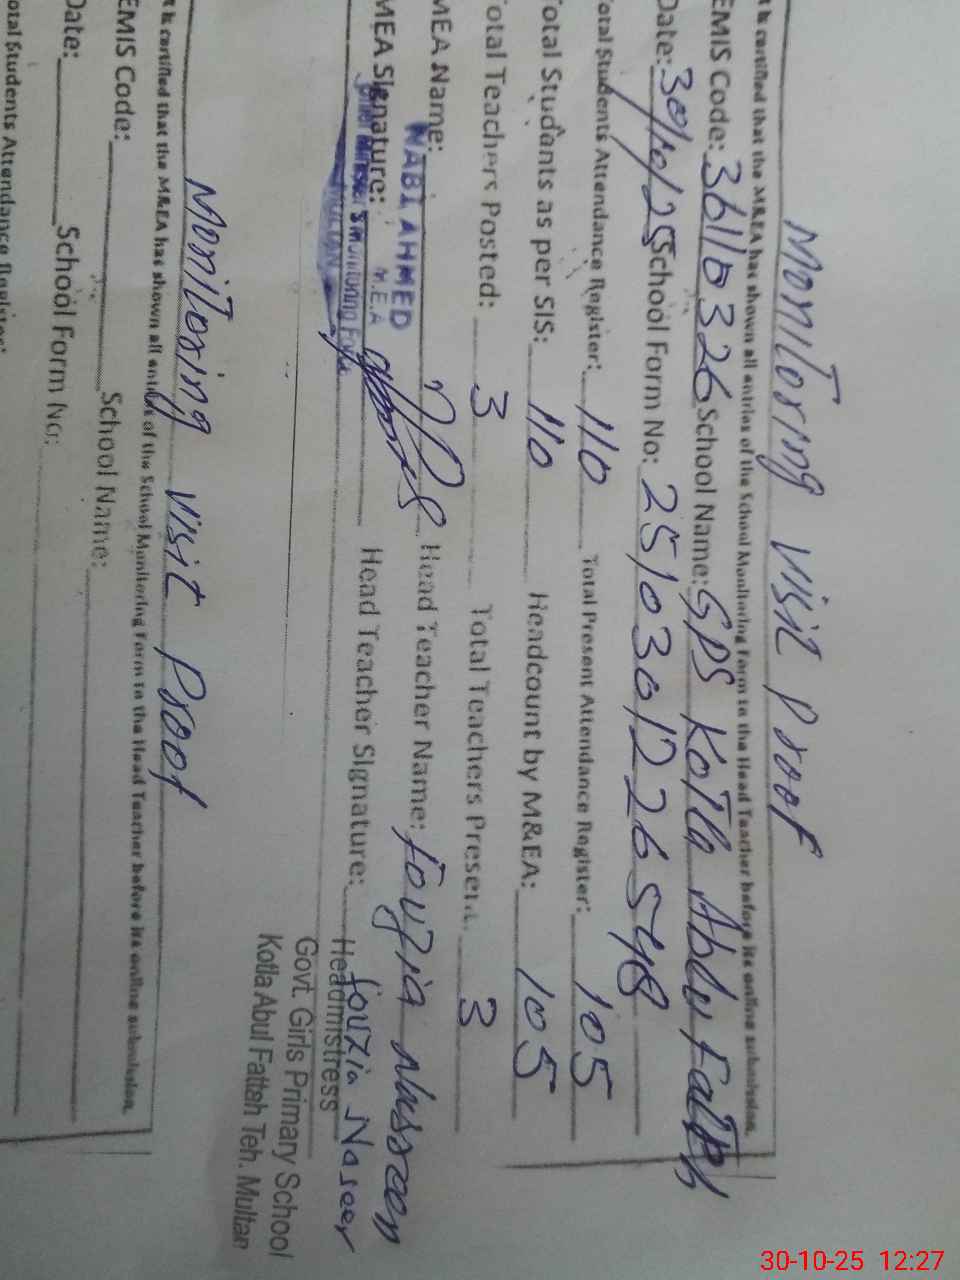 Monitoring Visit Proof
It is certified that the M&EA has shown all entries of the School Monitoring Form to the Head Teacher before its online submission.
EMIS Code: 36110326 School Name: GPS Kotla Abdu Fatth
Date: 30/10/25 School Form No: 2510301226548
Total Students Attendance Register: 110 Total Present Attendance Register: 105
Total Students as per SIS: 110 Headcount by M&EA: 105
Total Teachers Posted: 3 Total Teachers Present: 3
MEA Name: Head Teacher Name: Fouzia Nasreen
NABI AHMED
M.E.A
MEA Signature: Head Teacher Signature: Fouzia Naseer
Headmistress
Govt. Girls Primary School
Kotla Abul Fatteh Teh. Multan
Monitoring Visit Proof
It is certified that the M&EA has shown all entries of the School Monitoring Form to the Head Teacher before its online submission.
EMIS Code: School Name:
Date: School Form No:
Total Students Attendance Register:
30-10-25 12:27